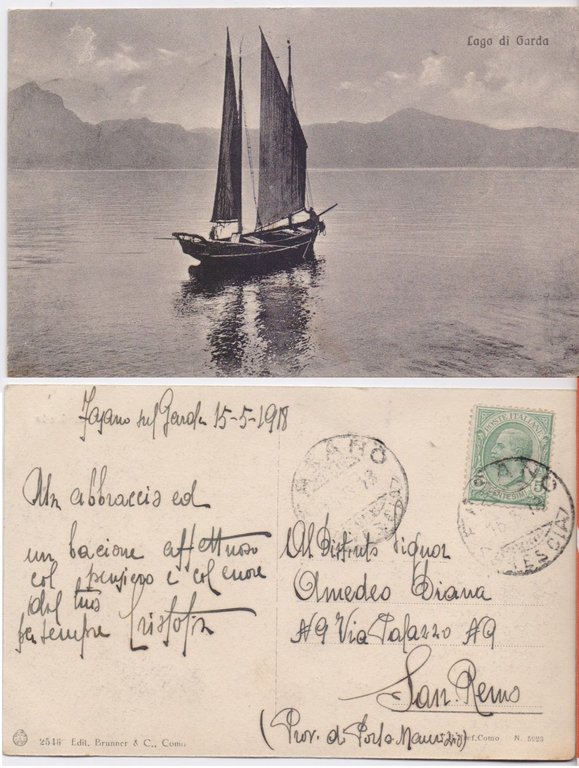 Lago di Garda
Fasano sul Garda 15-5-1918
Un abbraccio ed
un bacione affettuoso
col pensiero e col cuore
dal tuo
per sempre
FASANO
BRESCIA
POSTE ITALIANE
CENTESIMI
FASANO
BRESCIA
Al Distinto signor
Amedeo Diana
N9 Via Palazzo N9
San. Remo
(Prov. di Porto Maurizio)
2546 Edit. Brunner & C., Como
Como N. 5923